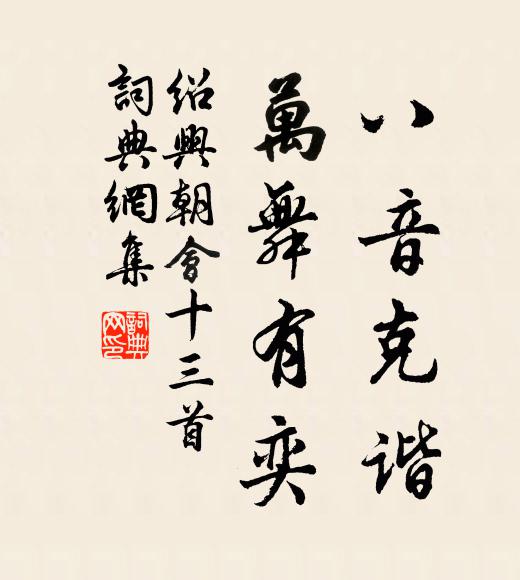 八音克谐
萬舞有奕
绍興朝會十三首
詞典網集
詞典網印